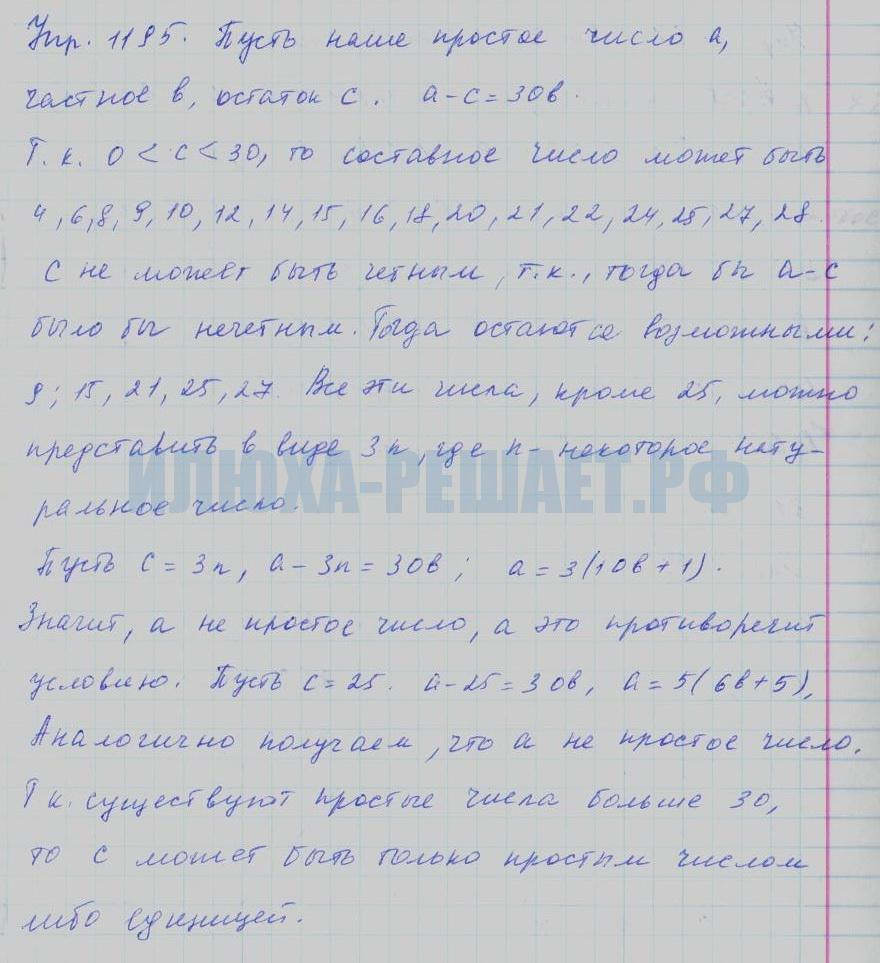 Упр. 1195. Пусть наше простое число a,
частное в, остаток c. a-c=30в.
Т.к. 0<c<30, то составное число может быть
4,6,8,9,10,12,14,15,16,18,20,21,22,24,25,27,28.
C не может быть четным, т.к., тогда бы a-c
было бы нечетным. Тогда остаются возможными:
9; 15, 21, 25, 27. Все эти числа, кроме 25, можно
представить в виде 3n, где n - некоторое нату-
ИЛЮХА-РЕШАЕТ.РФ
ральное число.
Пусть c = 3n, a - 3n = 30в; a = 3(10в + 1).
Значит, a не простое число, а это противоречит
условию. Пусть c = 25. a-25=30в, a=5(6в+5),
Аналогично получаем, что a не простое число.
Т к. существуют простые числа больше 30,
то c может быть только простым числом
либо единицей.